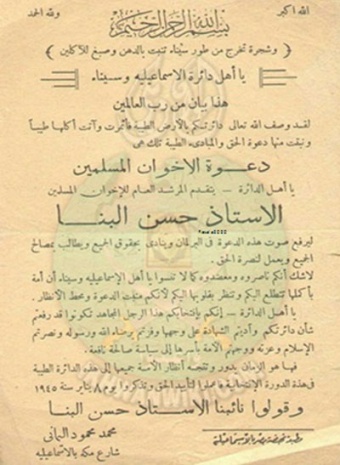 الله أكبر
ولله الحمد
بسم الله الرحمن الرحيم
( وشجرة تخرج من طور سيناء تنبت بالدهن وصبغ للآكلين )
يا أهل دائرة الاسماعيليه وسيناء
هذا بيان من رب العالمين
لقد وصف الله تعالى دائرتكم بالأرض الطيبة فأثمرت وآتت أكلها طيباً
ونبتت منها دعوة الحق والمبادىء الطيبة تلك هى
دعوة الاخوان المسلمين
يا أهل الدائرة — يتقدم المرشد العام للإخوان المسلمين
الاستاذ حسن البنا
ليرفع صوت هذه الدعوة فى البرلمان وينادى بحقوق الجميع ويطالب بمصالح
الجميع ويعمل لنصرة الحق .
لاشك أنكم ناصروه ومعضدوه كما لا تنسوا يا أهل الإسماعيلية وسيناء أن أمة
بأكملها تتطلع اليكم وتنظر بقلوبها اليكم لأنكم منبت الدعوة ومحط الأنظار .
يا أهل الدائرة — إنكم بانتخابكم هذا الرجل المجاهد تكونوا قد رفعتم
شأن دائرتكم وأديتم الشهادة على وجهها وفزتم برضاء الله ورسوله ونصرتم
الإسلام وعزته ووجهتم الأمة بأسرها إلى سياسة صالحة نافعة .
فها هو الزمان يدور وتتجه أنظار الأمة جميعها إلى هذه الدائرة الطيبة
فى هذه الدورة الإنتخابية لتأييد الحق وتذكروا يوم ٨ يناير سنة ١٩٤٥
وقولوا نائبنا الاستاذ حسن البنا
محمد محمود اليمانى
شارع مكه بالاسماعيليه